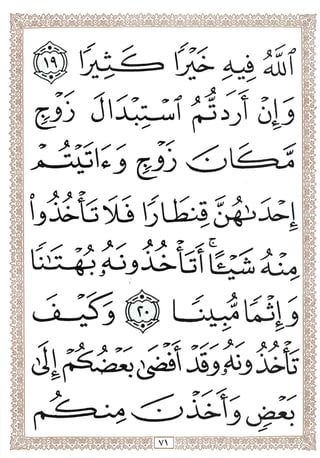 ٱللَّهُ فِيهِ خَيۡرٗا كَثِيرٗا ١٩
وَإِنۡ أَرَدتُّمُ ٱسۡتِبۡدَالَ زَوۡجٖ
مَّكَانَ زَوۡجٖ وَءَاتَيۡتُمۡ
إِحۡدَىٰهُنَّ قِنطَارٗا فَلَا تَأۡخُذُواْ
مِنۡهُ شَيۡـًٔاۚ أَتَأۡخُذُونَهُۥ بُهۡتَٰنٗا
وَإِثۡمٗا مُّبِينٗا ٢٠ وَكَيۡفَ
تَأۡخُذُونَهُۥ وَقَدۡ أَفۡضَىٰ بَعۡضُكُمۡ إِلَىٰ
بَعۡضٖ وَأَخَذۡنَ مِنكُم
٧١